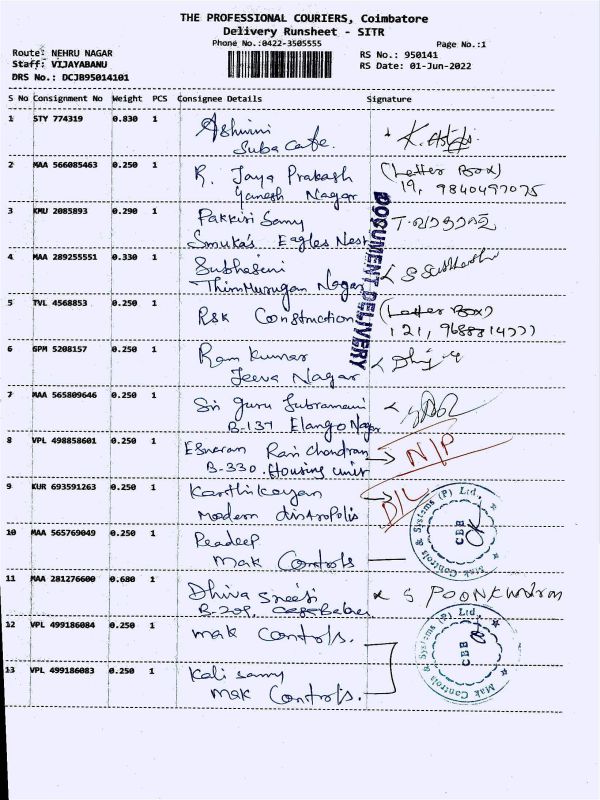 THE PROFESSIONAL COURIERS, Coimbatore
Delivery Runsheet - SITR
Phone No.:0422-3505555
Page No.:1
Route: NEHRU NAGAR
RS No.: 950141
Staff: VIJAYABANU
RS Date: 01-Jun-2022
DRS No.: DCJB95014101
S No Consignment No Weight PCS Consignee Details Signature
1 STY 774319 0.830 1 Ashwini
Suba Cafe.
2 MAA 566085463 0.250 1 R. Jaya Prakash (Letter Box)
Ganesh Nagar 19, 9840497075
DOCUMENT DELIVERY
3 KMU 2085893 0.290 1 Pakkiri Samy
Smuka's Eagles Nest
4 MAA 289255551 0.330 1 Subhasini
ThiruMurugan Nagar
5 TVL 4568853 0.250 1 R&K Construction (Letter Box)
121,
6 GPM 5208157 0.250 1 Ram Kumar
Jeeva Nagar
7 MAA 565809646 0.250 1 Sri Guru Subramani
B-137 Elango Nagar
8 VPL 498858601 0.250 1 Esneram Ram Chandran N/P
B-330. Housing unit
9 KUR 693591263 0.250 1 Karthikayan D/L
Modern
10 MAA 565769049 0.250 1 Peadeep
Mak Controls
Mak Controls & Systems (P) Ltd., CBE
11 MAA 281276600 0.680 1 Dhiva
B-209,
12 VPL 499186084 0.250 1 Mak Controls.
13 VPL 499186083 0.250 1 Kali Samy
Mak Controls.
Mak Controls & Systems (P) Ltd., CBE